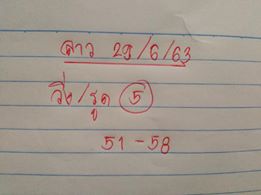 ลาว 29/6/63
วิ่ง/รูด 5
51-58